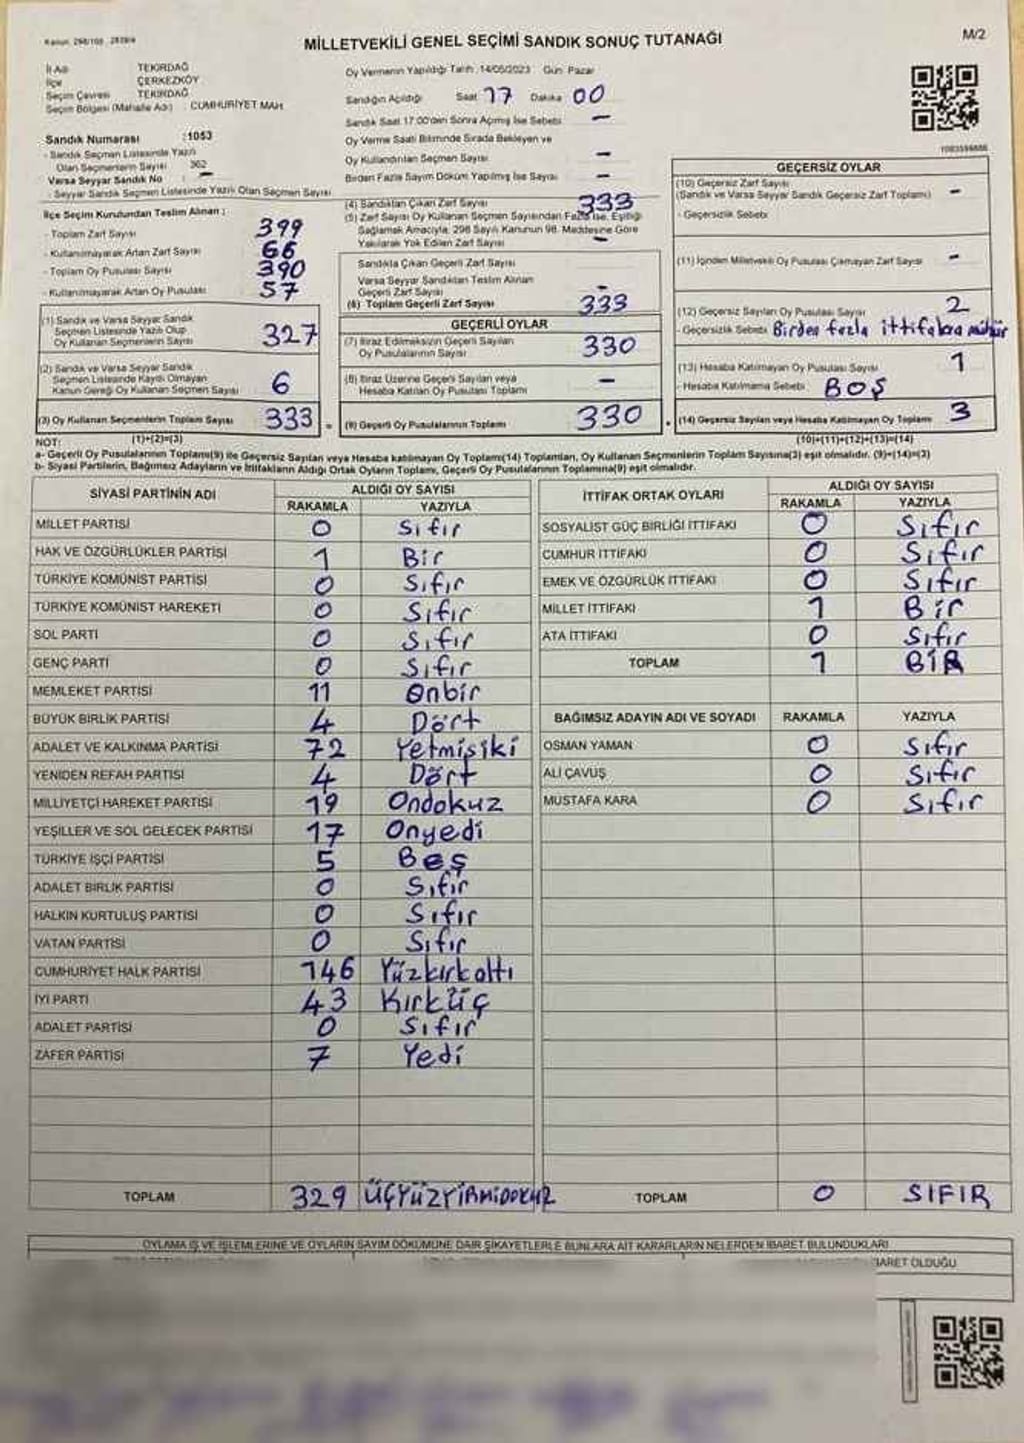 Kanun: 298/105
MİLLETVEKİLİ GENEL SEÇİMİ SANDIK SONUÇ TUTANAĞI
M/2
İl Adı : TEKİRDAĞ
İlçe : ÇERKEZKÖY
Seçim Çevresi : TEKİRDAĞ
Seçim Bölgesi (Mahalle Adı) : CUMHURİYET MAH.
Sandık Numarası :1053
- Sandık Seçmen Listesinde Yazılı
Olan Seçmenlerin Sayısı 362
Varsa Seyyar Sandık No : -
- Seyyar Sandık Seçmen Listesinde Yazılı Olan Seçmen Sayısı
Oy Vermenin Yapıldığı Tarih :14/05/2023 Gün: Pazar
Sandığın Açıldığı Saat 17 Dakika 00
Sandık Saat 17:00'den Sonra Açılmış İse Sebebi -
Oy Verme Saati Bitiminde Sırada Bekleyen ve
Oy Kullandırılan Seçmen Sayısı -
Birden Fazla Sayım Döküm Yapılmış İse Sayısı -
İlçe Seçim Kurulundan Teslim Alınan :
- Toplam Zarf Sayısı 399
- Kullanılmayarak Artan Zarf Sayısı 66
- Toplam Oy Pusulası Sayısı 390
- Kullanılmayarak Artan Oy Pusulası 57
(1) Sandık ve Varsa Seyyar Sandık
Seçmen Listesinde Yazılı Olup
Oy Kullanan Seçmenlerin Sayısı 327
(2) Sandık ve Varsa Seyyar Sandık
Seçmen Listesinde Kaydı Olmayan
Kanun Gereği Oy Kullanan Seçmen Sayısı 6
(3) Oy Kullanan Seçmenlerin Toplam Sayısı 333
(1)+(2)=(3)
(4) Sandıktan Çıkan Zarf Sayısı 333
(5) Zarf Sayısı Oy Kullanan Seçmen Sayısından Fazla İse, Eşitliği
Sağlamak Amacıyla, 298 Sayılı Kanunun 98. Maddesine Göre
Yakılarak Yok Edilen Zarf Sayısı -
Sandıkta Çıkan Geçerli Zarf Sayısı
Varsa Seyyar Sandıktan Teslim Alınan
Geçerli Zarf Sayısı -
(6) Toplam Geçerli Zarf Sayısı 333
GEÇERLİ OYLAR
(7) İtiraz Edilmeksizin Geçerli Sayılan
Oy Pusulalarının Sayısı 330
(8) İtiraz Üzerine Geçerli Sayılan veya
Hesaba Katılan Oy Pusulası Toplamı -
(9) Geçerli Oy Pusulalarının Toplamı 330
1083598686
GEÇERSİZ OYLAR
(10) Geçersiz Zarf Sayısı
(Sandık ve Varsa Seyyar Sandık Geçersiz Zarf Toplamı) -
- Geçersizlik Sebebi
(11) İçinden Milletvekili Oy Pusulası Çıkmayan Zarf Sayısı -
(12) Geçersiz Sayılan Oy Pusulası Sayısı 2
- Geçersizlik Sebebi Birden fazla ittifakra mühür
(13) Hesaba Katılmayan Oy Pusulası Sayısı 1
- Hesaba Katılmama Sebebi BOŞ
(14) Geçersiz Sayılan veya Hesaba Katılmayan Oy Toplamı 3
(10)+(11)+(12)+(13)=(14)
NOT:
a- Geçerli Oy Pusulalarının Toplamı(9) ile Geçersiz Sayılan veya Hesaba katılmayan Oy Toplamı(14) Toplamları, Oy Kullanan Seçmenlerin Toplam Sayısına(3) eşit olmalıdır. (9)+(14)=(3)
b- Siyasi Partilerin, Bağımsız Adayların ve İttifakların Aldığı Ortak Oyların Toplamı, Geçerli Oy Pusulalarının Toplamına(9) eşit olmalıdır.
SİYASİ PARTİNİN ADI ALDIĞI OY SAYISI
RAKAMLA YAZIYLA
MİLLET PARTİSİ 0 Sıfır
HAK VE ÖZGÜRLÜKLER PARTİSİ 1 Bir
TÜRKİYE KOMÜNİST PARTİSİ 0 Sıfır
TÜRKİYE KOMÜNİST HAREKETİ 0 Sıfır
SOL PARTİ 0 Sıfır
GENÇ PARTİ 0 Sıfır
MEMLEKET PARTİSİ 11 Onbir
BÜYÜK BİRLİK PARTİSİ 4 Dört
ADALET VE KALKINMA PARTİSİ 72 Yetmişiki
YENİDEN REFAH PARTİSİ 4 Dört
MİLLİYETÇİ HAREKET PARTİSİ 19 Ondokuz
YEŞİLLER VE SOL GELECEK PARTİSİ 17 Onyedi
TÜRKİYE İŞÇİ PARTİSİ 5 Beş
ADALET BİRLİK PARTİSİ 0 Sıfır
HALKIN KURTULUŞ PARTİSİ 0 Sıfır
VATAN PARTİSİ 0 Sıfır
CUMHURİYET HALK PARTİSİ 146 Yüzkırkaltı
İYİ PARTİ 43 Kırküç
ADALET PARTİSİ 0 Sıfır
ZAFER PARTİSİ 7 Yedi
TOPLAM 329 ÜÇYÜZYİRMİDOKUZ
İTTİFAK ORTAK OYLARI ALDIĞI OY SAYISI
RAKAMLA YAZIYLA
SOSYALİST GÜÇ BİRLİĞİ İTTİFAKI 0 Sıfır
CUMHUR İTTİFAKI 0 Sıfır
EMEK VE ÖZGÜRLÜK İTTİFAKI 0 Sıfır
MİLLET İTTİFAKI 1 Bir
ATA İTTİFAKI 0 Sıfır
TOPLAM 1 BİR
BAĞIMSIZ ADAYIN ADI VE SOYADI RAKAMLA YAZIYLA
OSMAN YAMAN 0 Sıfır
ALİ ÇAVUŞ 0 Sıfır
MUSTAFA KARA 0 Sıfır
TOPLAM 0 SIFIR
OYLAMA İŞ VE İŞLEMLERİNE VE OYLARIN SAYIM DÖKÜMÜNE DAİR ŞİKAYETLERLE BUNLARA AİT KARARLARIN NELERDEN İBARET BULUNDUKLARI
İBARET OLDUĞU